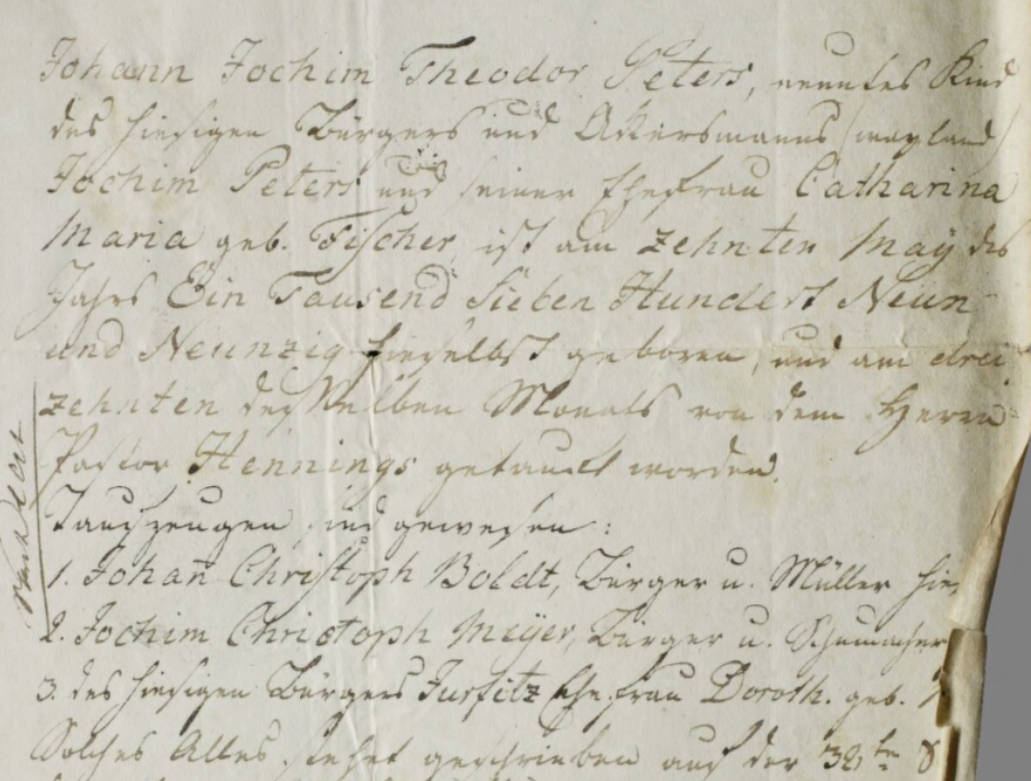 Johann Jochim Theodor Peters, neuntes Kind
des hiesigen Bürgers und Akersmanns (weyland)
Jochim Peters und seiner Ehefrau Catharina
Maria geb. Fischer, ist am zehnten May des
Jahrs Ein Tausend Sieben Hundert Neun
und Neunzig hieselbst geboren, und am drei
zehnten desselben Monats von dem Herrn
Pastor Hennings getauft worden.
Taufzeugen sind gewesen:
1. Johan̄ Christoph Boldt, Bürger u. Müller hies
2. Jochim Christoph Meyer, Bürger u. Schumacher
3. des hiesigen Bürgers Ehefrau Doroth. geb.
Solches Alles stehet geschrieben auf der 32te S